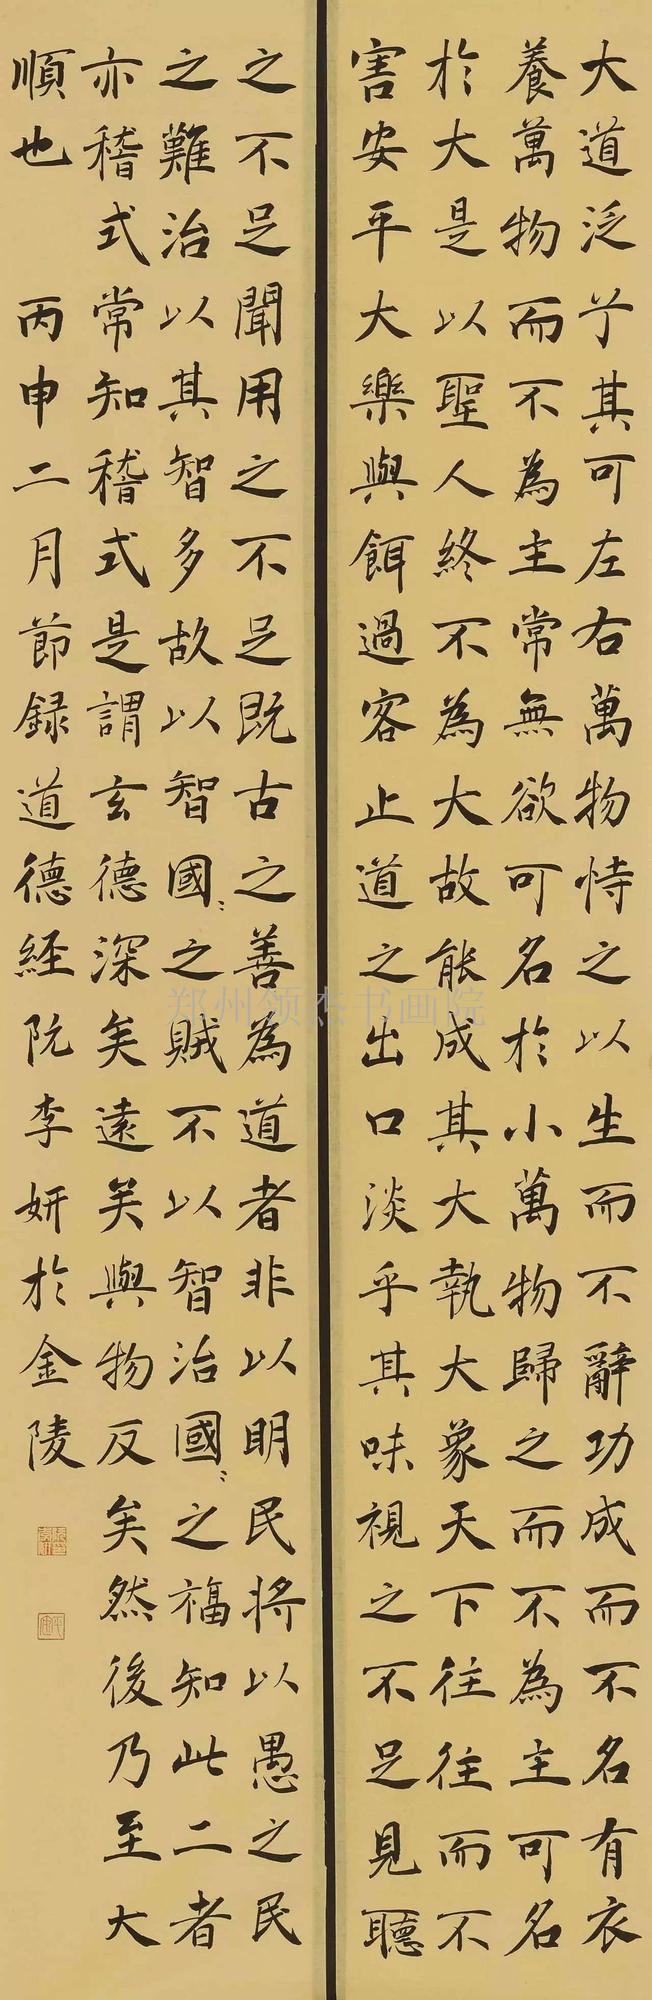 大道泛兮其可左右萬物恃之以生而不辭功成而不名有衣
養萬物而不為主常無欲可名於小萬物歸之而不為主可名
於大是以聖人終不為大故能成其大執大象天下往往而不
害安平大樂與餌過客止道之出口淡乎其味視之不足見聽
之不足聞用之不足既古之善為道者非以明民將以愚之民
之難治以其智多故以智國〻之賊不以智治國〻之福知此二者
亦稽式常知稽式是謂玄德深矣遠矣與物反矣然後乃至大
順也 丙申二月節録道德経阮李妍於金陵
郑州领杰书画院